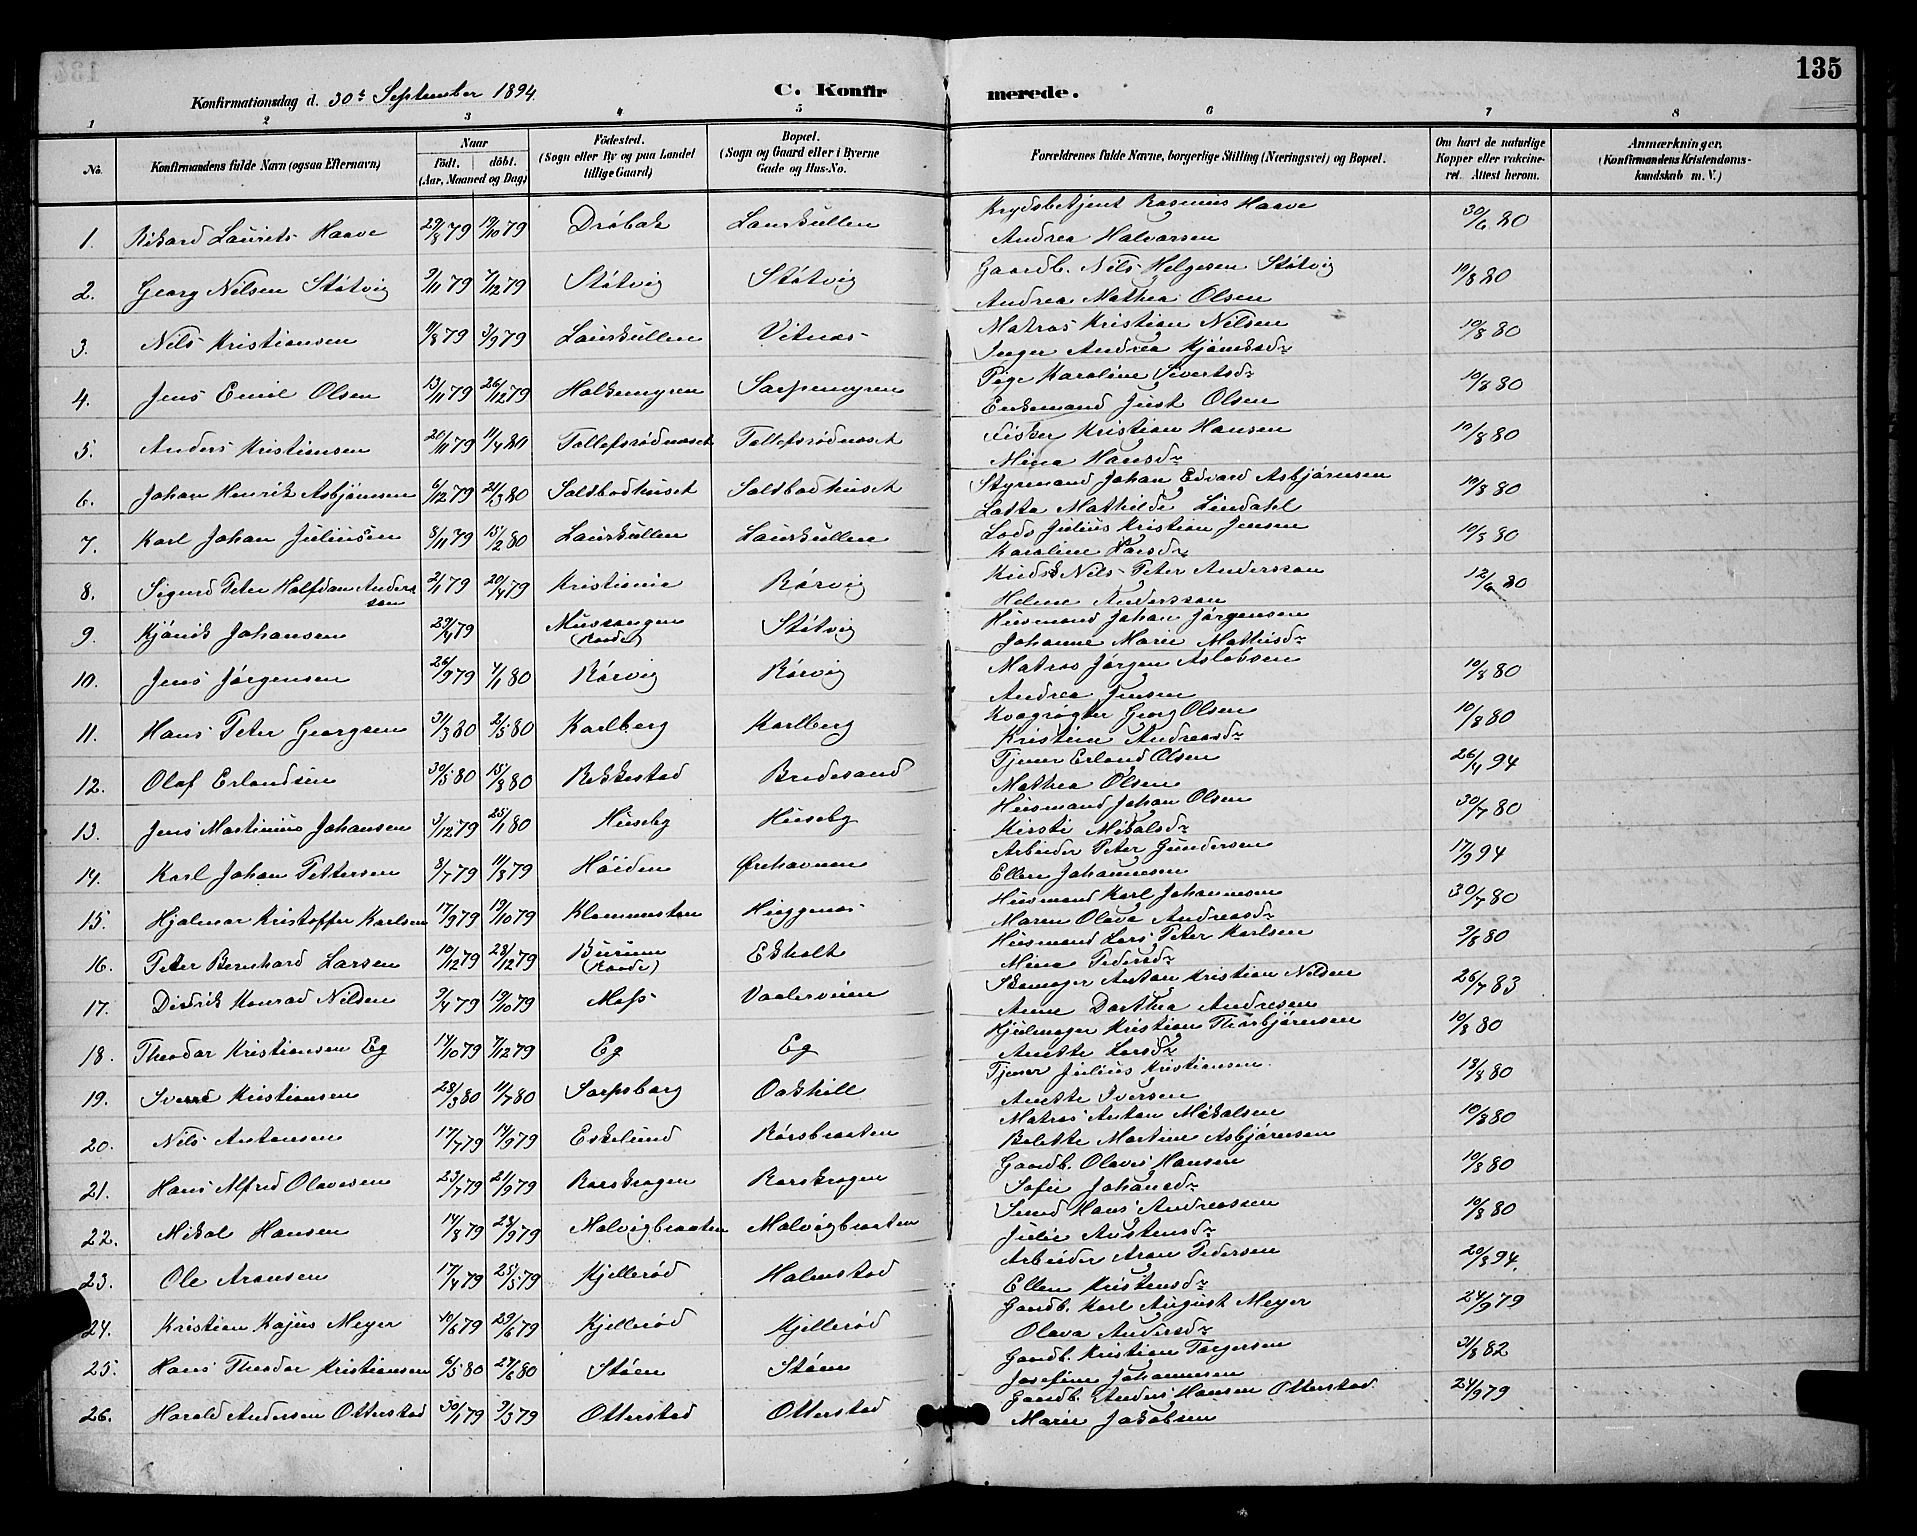 135
Konfirmationsdag d. 30t September 1894. C. Konfirmerede.
1 2 3 4 5 6 7 8
No. Konfirmandens fulde Navn (ogsaa Efternavn) Naar født. døbt. (Aar, Maaned og Dag) Födested. (Sogn eller By og paa Landet tillige Gaard) Bopæl. (Sogn og Gaard eller i Byerne Gade og Hus-No. Forældrenes fulde Navne, borgerlige Stilling (Næringsvei) og Bopæl. Om havt de naturlige Kopper eller vakcineret. Attest herom. Anmærkninger. (Konfirmandens Kristendomskundskab m. V.)
1. Rikard Laurets Haave 29/8 79 19/10 79 Drøbak Laurkullen Krydsbetjent Rasmus Haave 30/6 80
Andrea Halvorsen
2. Georg Nilsen Støtvig 9/11 79 7/12 79 Støtvig Støtvig Gaardb. Nils Helgesen Støtvig 10/8 80
Andrea Mathea Olsen
3. Nils Kristiansen 11/8 79 3/9 79 Laurkullen Vitnæs Matros Kristian Nilsen 10/8 80
Inger Andrea
4. Jens Emil Olsen 13/11 79 26/12 79 Holkemyren Sarpemyren Pige Karoline Sivertsdr 10/8 80
Enkemand Just Olsen
5. Anders Kristiansen 20/11 79 11/4 80 Tollefsrødnæset Tollefsrødnæset Fisker Kristian Hansen 10/8 80
Mina Hansdr
6. Johan Henrik Asbjørnsen 6/12 79 21/3 80 Saltbodhuset Saltbodhuset Styrmand Johan Edvard Asbjørnsen 10/8 80
Lotta Mathilde Lindahl
7. Karl Johan Juliussen 8/11 79 15/2 80 Laurkullen Laurkullen Lods Julius Kristian Jensen 10/8 80
Karoline Larsdr
8. Sigurd Peter Halfdan Anderssen 2/1 79 20/4 79 Kristiania Rørvig Kudsk Nils Peter Andersson 12/6 80
Helene Andersson
9. Kjønik Johansen 29/4 79 Mussangen (Raade) Støtvig Husmand Johan Jørgensen
Johanne Marie Mathisdr
10. Jens Jørgensen 26/9 79 4/1 80 Rørvig Rørvig Matros Jørgen Aslaksen 10/8 80
Andrea Jensen
11. Hans Peter Georgsen 31/3 80 2/5 80 Karlberg Karlberg Kvægrøgter Georg Olsen 10/8 80
Kristine Andreasdr
12. Olaf Erlandsen 30/5 80 15/8 80 Rekkestad Bredesand Tjener Erland Olsen 26/4 94
Mathea Olsen
13. Jens Martinius Johansen 3/12 79 25/1 80 Huseby Huseby Husmand Johan Olsen 30/7 80
Kirsti Mikalsdr
14. Karl Johan Pettersen 8/7 79 11/8 79 Høiden Ørehavnen Arbeider Peter Gundersen 17/9 94
Ellen Johannesen
15. Hjalmar Kristoffer Karlsen 17/9 79 19/10 79 Klommesten Huggenæs Husmand Karl Johannesen 30/7 80
Maren Olava Andreasdr
16. Peter Bernhard Larsen 10/12 79 28/12 79 Burum (Raade) Ekholt Husmand Lars Peter Karlsen 9/8 80
Mina Pedersdr
17. Didrik Konrad Nilden 9/4 79 19/10 79 Moss Vaalerveien Skomager Anton Kristian Nilden 26/7 83
Anne Dorthea Andresen
18. Theodor Kristiansen Eg 14/10 79 7/12 79 Eg Eg Hjulmager Kristian Thorbjørnsen 10/8 80
Anette Larsdr
19. Sverre Kristiansen 28/3 80 11/7 80 Sarpsborg Oakhill Tjener Julius Kristiansen 13/8 80
Anette Iversen
20. Nils Antonsen 17/7 79 14/9 79 Eskelund Rørsbraaten Matros Anton Mikalsen 10/8 80
Bolette Martine Asbjørnsen
21. Hans Alfred Olavesen 23/7 79 21/9 79 Rørskrogen Rørskrogen Gaardb. Olaves Hansen 10/8 80
Sofie Johansdr
22. Mikal Hansen 14/8 79 28/9 79 Malvigbraaten Malvigbraaten Smed Hans Andreassen 10/8 80
Julie Austensdr
23. Ole Aronsen 17/4 79 25/5 79 Kjellerød Holmstad Arbeider Aron Pedersen 20/3 94.
Ellen Kristensdr
24. Kristian Kajus Meyer 10/6 79 29/6 79 Kjellerød Kjellerød Gaardb. Karl August Meyer 24/9 79
Olava Andersdr
25. Hans Theodor Kristiansen 6/5 80 27/6 80 Støen Støen Gaardb. Kristian Torgersen 31/8 82
Josefine Johannesen
26. Harald Andersen Otterstad 30/1 79 9/3 79 Otterstad Otterstad Gaardb. Anders Hansen Otterstad 24/9 79
Marie Jakobsen